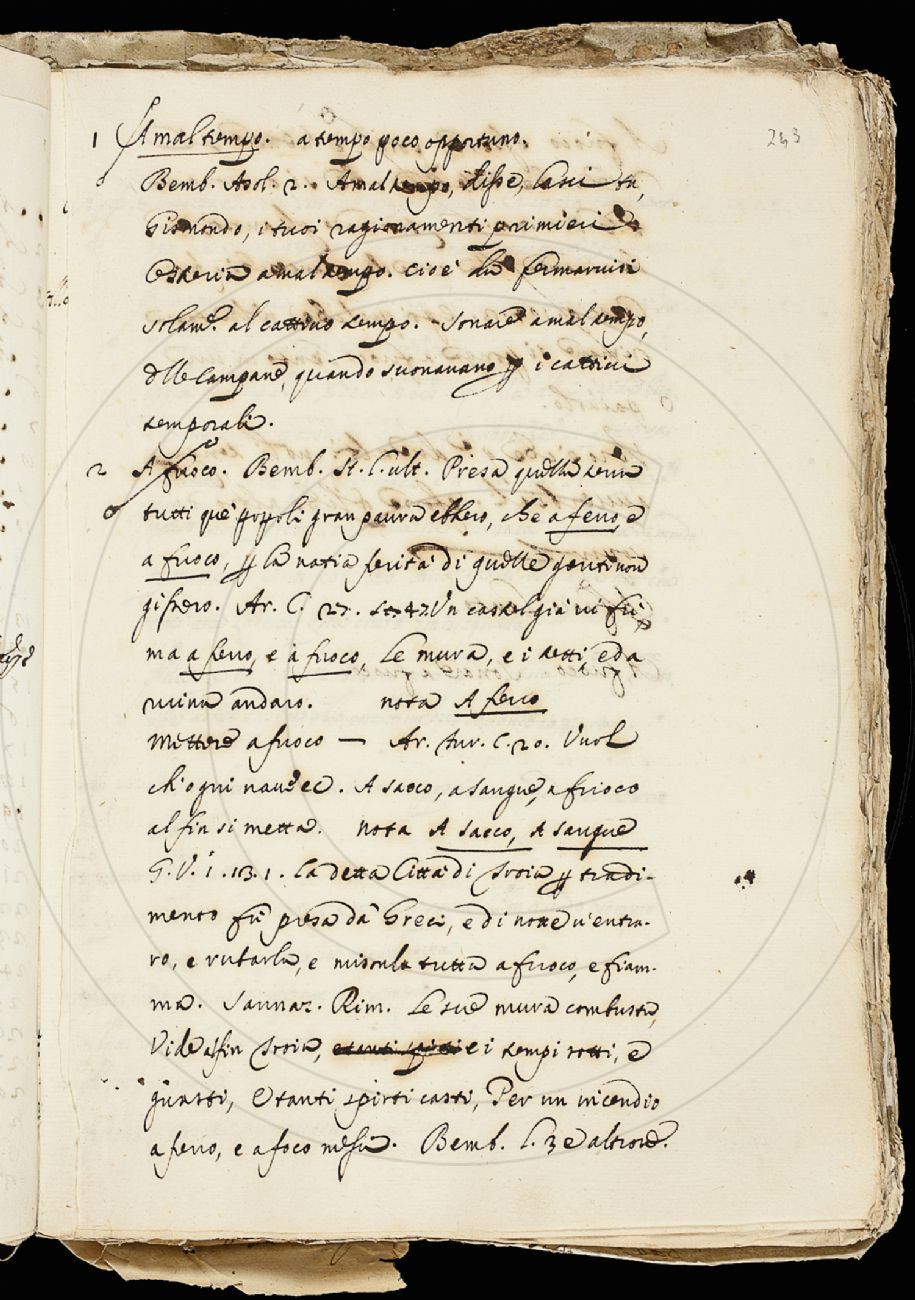 243
1 A mal tempo. a tempo poco opportuno.
Bemb. Asol. 2. A mal tempo, disse, lasci tu,
Gismondo, i tuoi ragionamenti primieri
a mal tempo. cioè fermarvisi
solam.e al cattivo tempo. Sonare a mal tempo,
delle campane, quando suonavano ꝑ i cattivi
temporali.
2 A fuoco. Bemb. St. l. ult. Presa quella terra
tutti que' popoli gran paura ebbero, che a ferro, e
a fuoco, ꝑ la natia ferità di quelle genti non
gissero. Ar. C. 27. st. 47 Un castel già vi fu
ma a ferro, e a fuoco, Le mura, e i tetti, ed a
ruina andaro. nota A ferro
Mettere a fuoco — Ar. fur. C. 20. Vuol
ch'ogni nave e c. A sacco, a sangue, a fuoco
al fin si metta. nota A sacco, A sangue
G. V. 1. 13. 1. La detta Città di Troia ꝑ tradi-
mento fu presa da' Greci, e di notte v'entra-
ro, e rubarla, e misonla tutta a fuoco, e fiam-
ma. Sannaz. Rim. Le sue mura combuste,
Vide alfin Troia, e i tempi rotti, e
guasti, E tanti spirti casti, Per un incendio
a ferro, e a foco messi. Bemb. l. 3 e altrove.